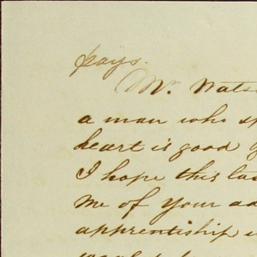 pays.
Mr. Wats
a man who sp
heart is good
I hope this las
me of your ad
apprentiship